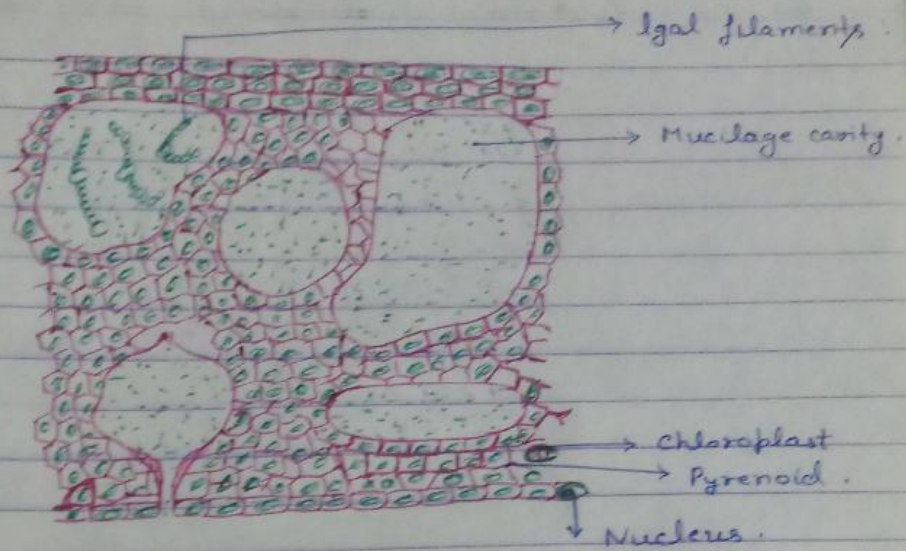 lgal filaments.
Mucilage cavity.
Chloroplast
Pyrenoid.
Nucleus.